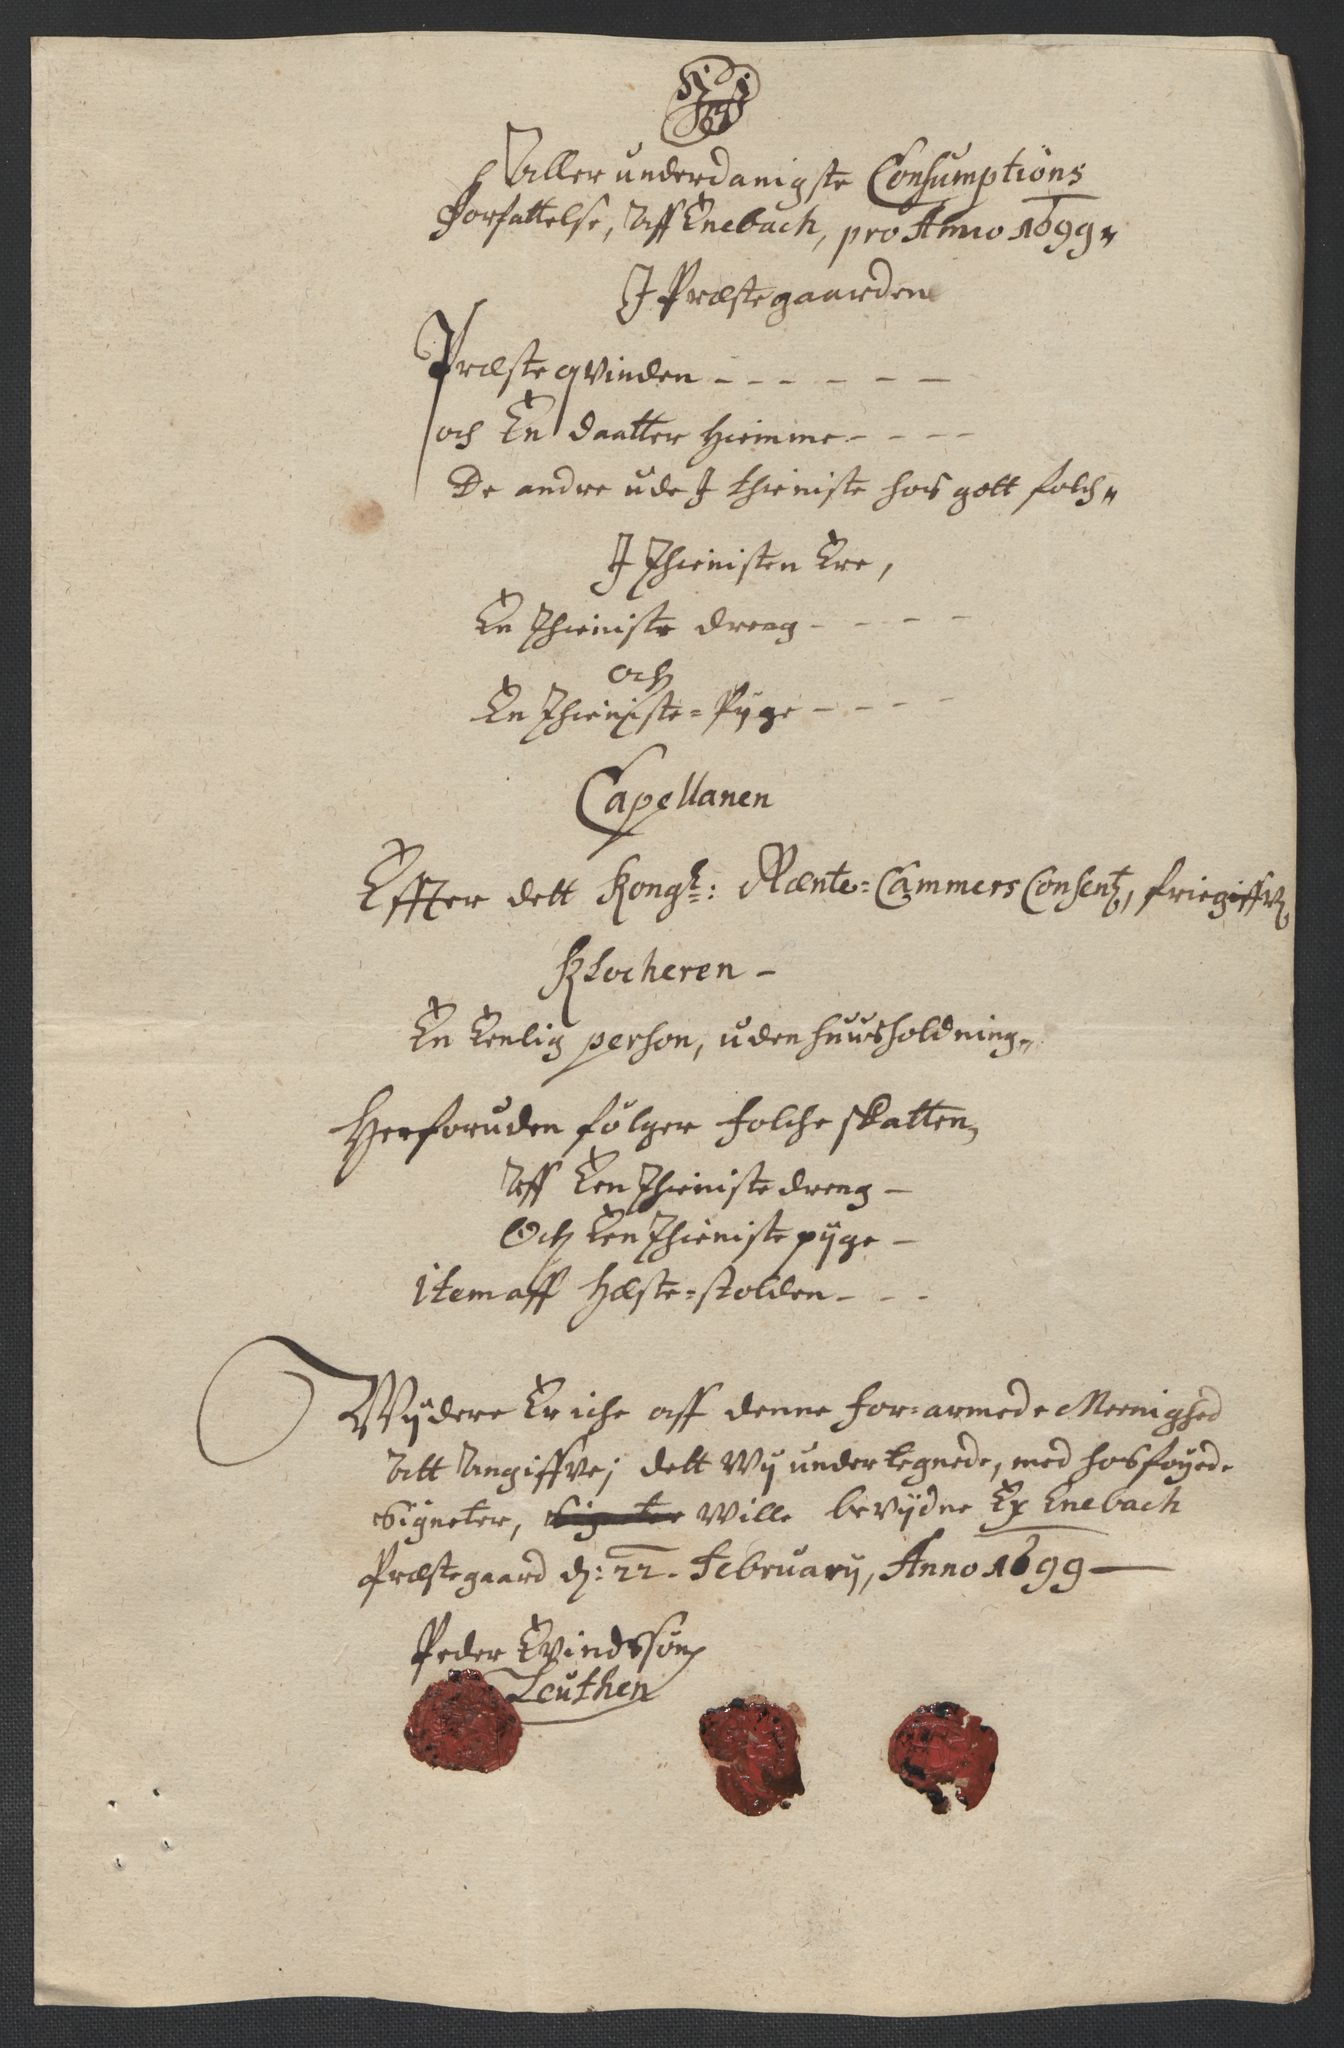 Aller underdanigste Consumptions
Forfattelse, Aff Enebach, pro Anno 1699
J Præstegaarden
Præsteqvinden - - - - - -
och En daatter hiemme - - - -
De andre ude J thieniste hos gott folch
J Thienisten Ere,
En Thieniste dreng - - - -
och
En Thieniste=Pyge - - - -
Capellanen
Effter dett Kongl: Rænte=Cammers Consentz, friegiffven
Klocheren -
En Eenlig person, uden huusholdning
Herforuden følger Folcheskatten,
Aff Een Thieniste dreng -
Och Een Thieniste pyge -
item aff Hæste=skolden - - -
Wydere Er iche aff denne for=armede Meenighed
Att Angiffve; dett Wy undertegnede, med hosføyede
Signeter, Signeter Wille bevydne Ex Enebach
Præstegaard d: 22. Februarij, Anno 1699
Peder Evindssøn
Leuthen